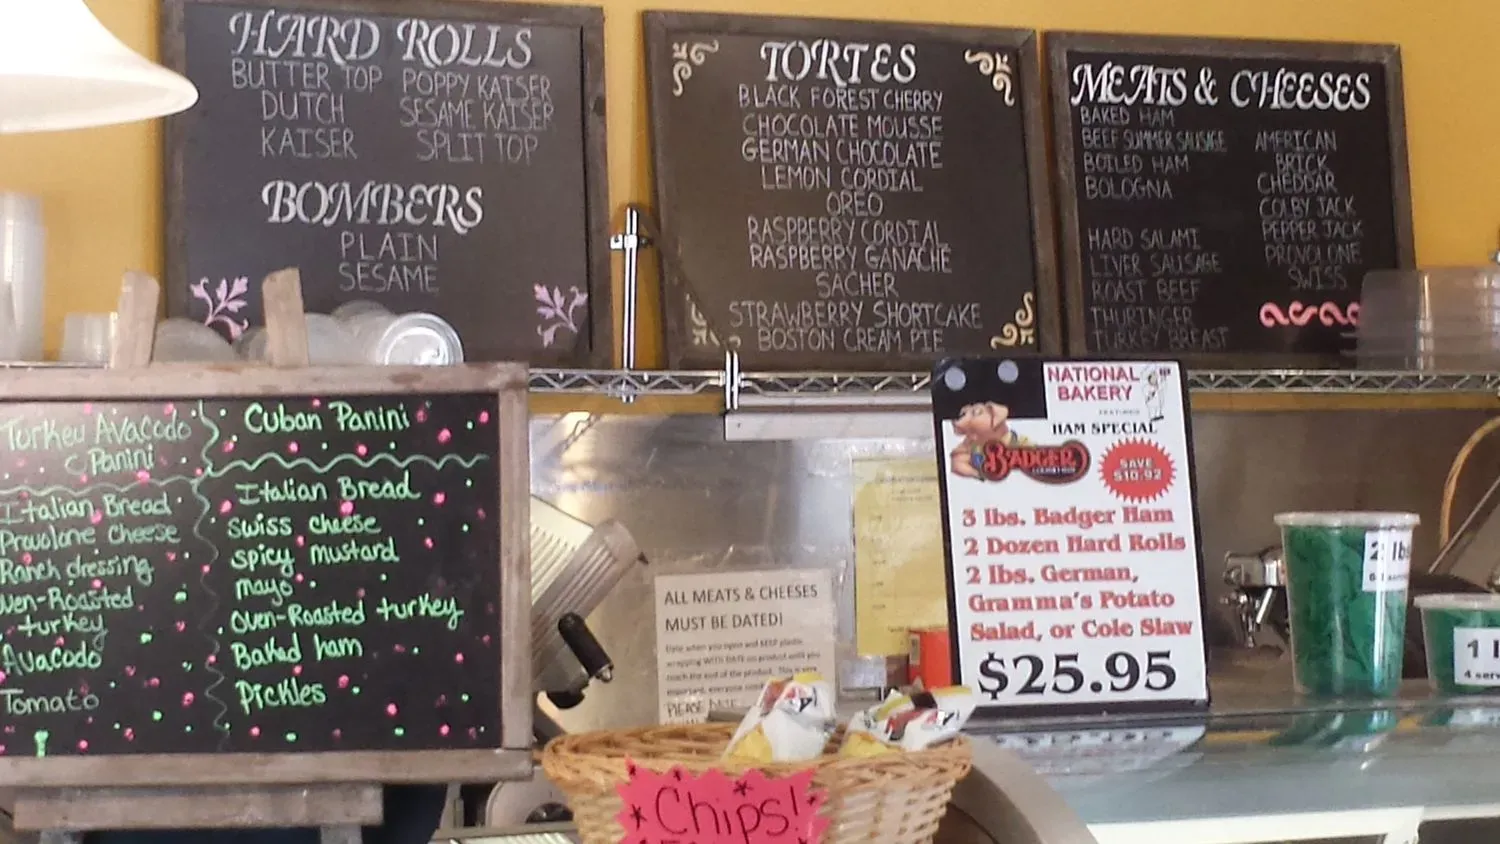 HARD ROLLS
BUTTER TOP POPPY KAISER
DUTCH SESAME KAISER
KAISER SPLIT TOP
BOMBERS
PLAIN
SESAME
TORTES
BLACK FOREST CHERRY
CHOCOLATE MOUSSE
GERMAN CHOCOLATE
LEMON CORDIAL
OREO
RASPBERRY CORDIAL
RASPBERRY GANACHE
SACHER
STRAWBERRY SHORTCAKE
BOSTON CREAM PIE
MEATS & CHEESES
BAKED HAM
BEEF SUMMER SAUSAGE
BOILED HAM
BOLOGNA
HARD SALAMI
LIVER SAUSAGE
ROAST BEEF
THURINGER
TURKEY BREAST
AMERICAN
BRICK
CHEDDAR
COLBY JACK
PEPPER JACK
PROVOLONE
SWISS
Turkey Avacodo
Panini
Italian Bread
Provolone Cheese
Ranch dressing
Oven-Roasted
turkey
Avacodo
Tomato
Cuban Panini
Italian Bread
swiss cheese
spicy mustard
mayo
Oven-Roasted turkey
Baked ham
Pickles
ALL MEATS & CHEESES
MUST BE DATED!
NATIONAL
BAKERY
HAM SPECIAL
BADGER
SAVE
$10.92
3 lbs. Badger Ham
2 Dozen Hard Rolls
2 lbs. German,
Gramma's Potato
Salad, or Cole Slaw
$25.95
2 lbs
1 l
4 serv
Chips!